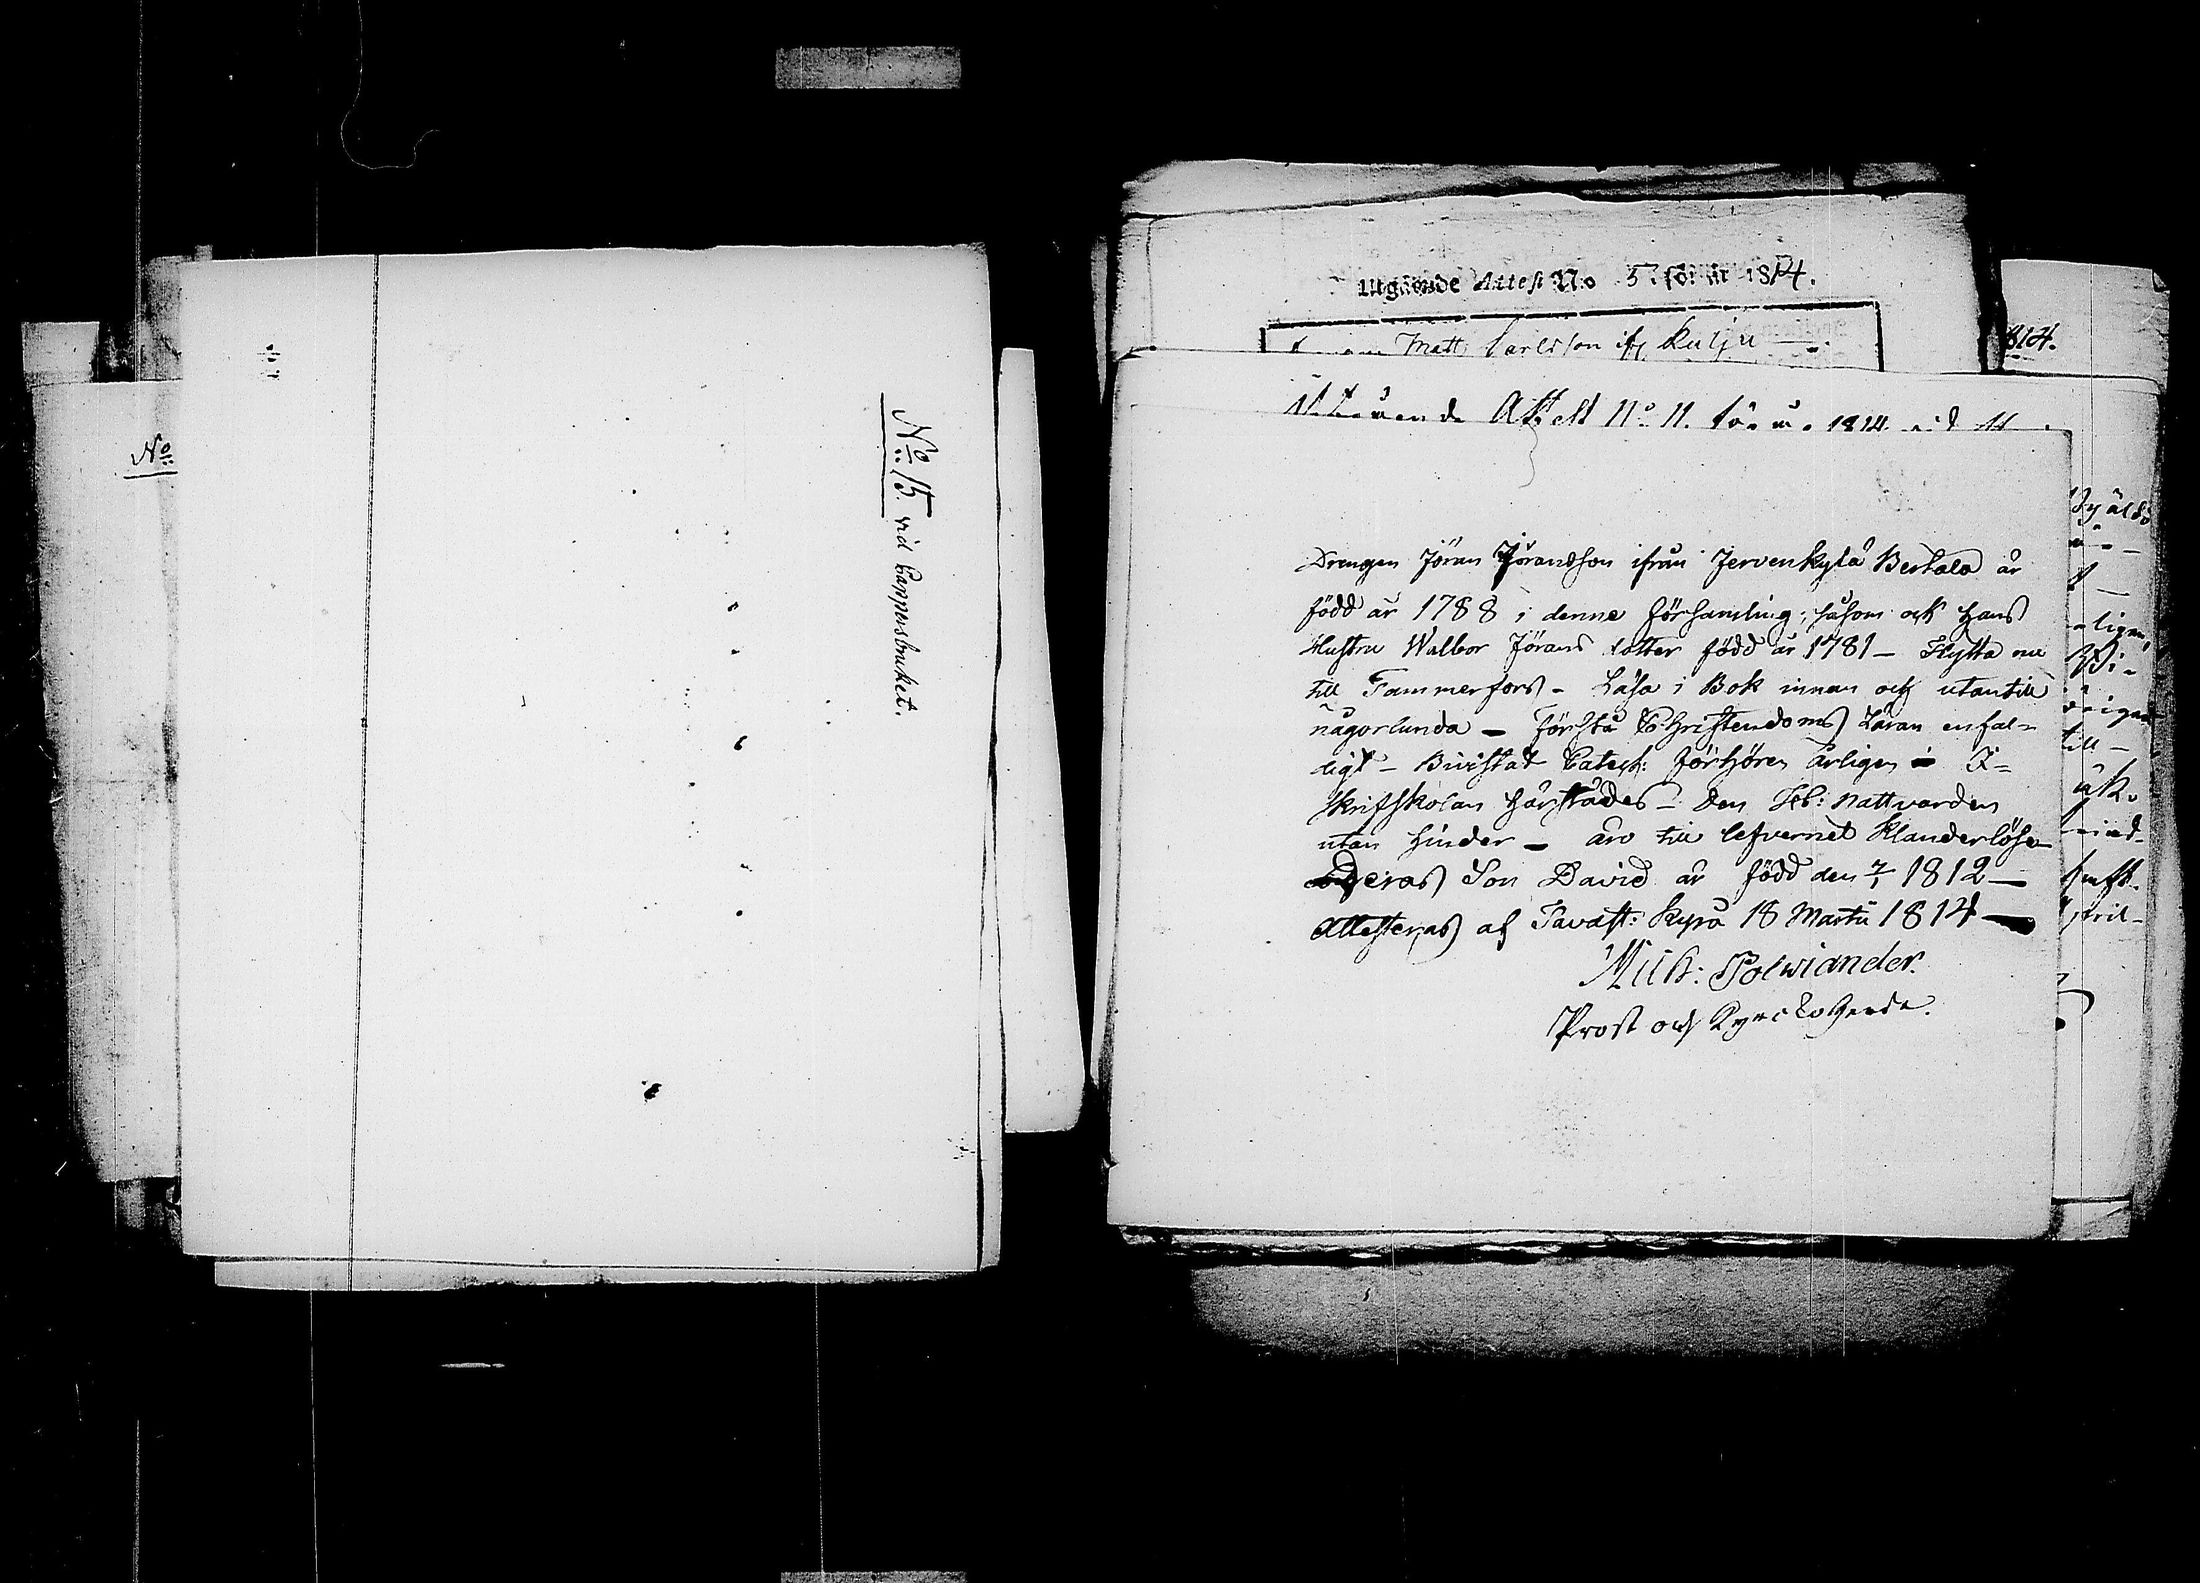 No:
No: 15. vid Pappersbruket.
Utgående Attest No 5 för år 1814.
Matts Carlsson ifr Kulju
814.
Attest No 11. för år 1814.
Drengen Jöran Jöransson ifrån Jervenkylä Bertala är
född år 1788 i denne församling, såsom ock hans
Hustru Walbor Jörans dotter född år 1781 — Flytta nu
till Tammerfors — Läsa i Bok innan och utantill
någorlunda — Förstå Christendoms Läran enfal=
digt — Bivistat Catech: förhören årligen i
Skriftskolan härstädes — Den H: Nattvarden
utan hinder — äro till lefvernet klanderlöse
Deras Son David är född den 7/1 1812 —
Attesteras af Tavast: Kyro 18 Martii 1814 —
Mich: Polviander.
Prost och Kyrckoherde.